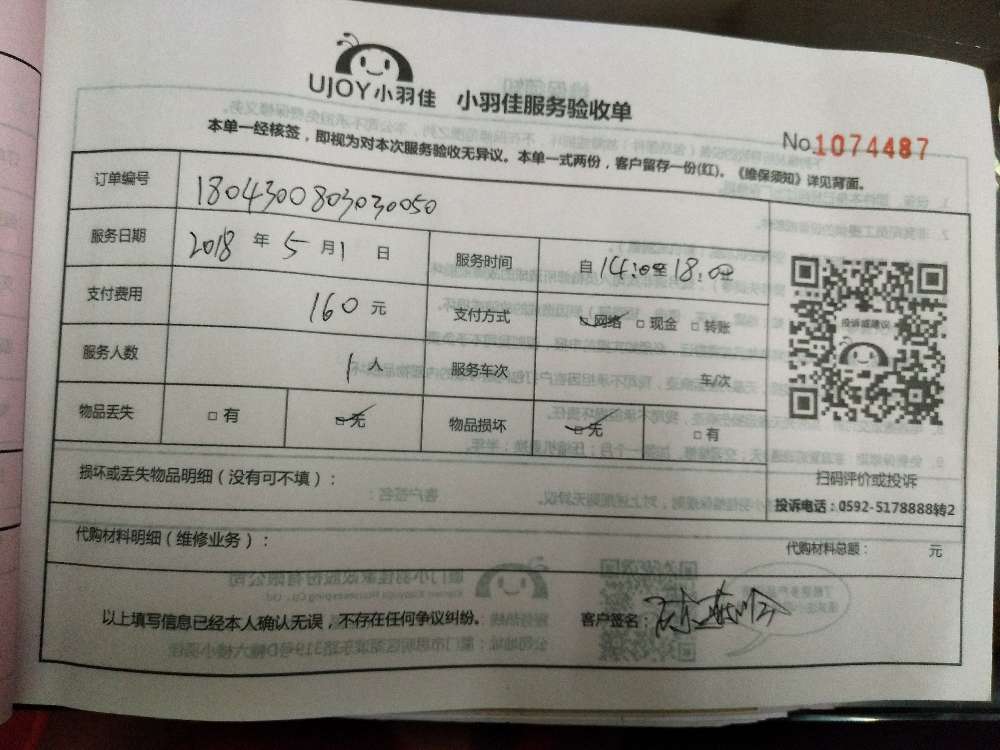 UJOY小羽佳 小羽佳服务验收单
No.1074487
本单一经核签，即视为对本次服务验收无异议。本单一式两份，客户留存一份(红)。《维保须知》详见背面。
订单编号 1804300803030050
服务日期 2018 年 5 月 1 日 服务时间 自 14:00 至 18:00
支付费用 160 元 支付方式 ☑网络 □现金 □转账
服务人数 1 人 服务车次 车/次
物品丢失 □有 ☑无 物品损坏 ☑无 □有
投诉或建议
扫码评价或投诉
投诉电话：0592-5178888转2
损坏或丢失物品明细（没有可不填）：
代购材料明细（维修业务）： 代购材料总额： 元
以上填写信息已经本人确认无误，不存在任何争议纠纷。 客户签名：